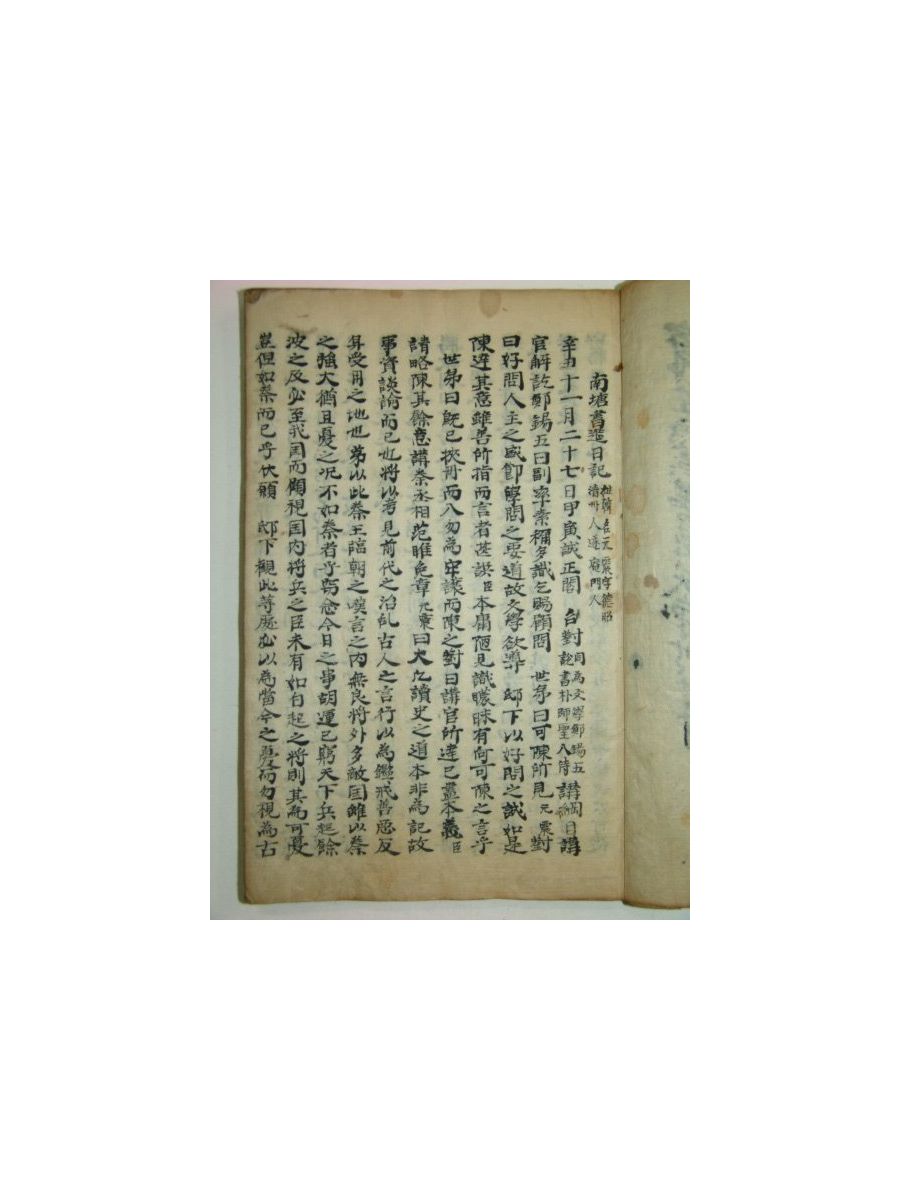 南塘書筵日記 姓韓名元震字德昭 淸州人遂菴門人
辛丑十一月二十七日甲寅誠正閤 召對 同爲文學鄭錫五 說書朴師聖入侍 講 日講
官解訖鄭錫五曰副率素稱多識乞賜顧問 世弟曰可陳所見元震對
曰好問人主之盛節學問之要道故文學欲導 邸下以好問之誠如是
陳達其意雖善所指而言者甚誤臣本庸陋見識矇昧有何可陳之言乎
世弟曰旣已挾册而入勿爲牢讓而陳之對曰講官所達已盡本義臣
請略陳其餘意講秦丞相范睢免章元震曰大凡讀史之道本非爲記故
事資談論而已也將以考見前代之治乱古人之言行以爲鑑戒善惡反
身受用之地也第以此秦王臨朝之嘆言之內無良將外多敵国雖以秦
之强大猶且憂之况不如秦者乎竊念今日之事胡運已窮天下兵起餘
波之反必至我国而顧視国內將兵之臣未有如白起之將則其爲可憂
豈但如秦而已乎伏願 邸下觀此等處必以爲當今之憂而勿視爲古